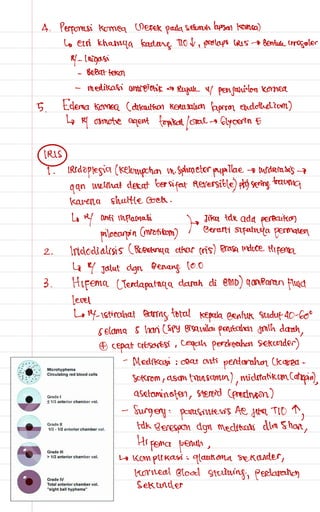 4. Perforasi Kornea (Derek pada seluruh lapisan kornea)
↳ ciri khasnya kadang TIO ↓, prolaps iris → Bentuk irreguler
R/ - Irigasi
- Bebat tekan
- medikasi → Rujuk u/ penjahitan kornea
5. Edema Kornea (dikaitkan kerusakan lapisan endothelium)
↳ R/ osmotic agent topikal/oral → Glycerin
IRIS
1. Iridoplegia (kelumpuhan m. sphincter pupillae → midriasis →
ggn melihat dekat bersifat Reversible) sering trauma
karena shuttle cock.
↳ R/ anti inflamasi
pilocarpin (miotikum)
Jika tdk ada perbaikan
Berarti sifatnya permanen
2. Iridodialisis (Robeknya akar iris) Bisa induce Hifema
↳ R/ jahit dgn Benang 10.0
3. Hifema (Terdapatnya darah di BMD) gambaran fluid
level
↳ R/ - istirahat Baring total kepala bentuk sudut 40-60°
selama 5 hari (spy
⊕ cepat absorbsi, cegah perdarahan sekunder)
- Medikasi : obat anti perdarahan (
asam tranxamin), midriatikum (atropin),
asetaminofen, steroid (prednison)
- Surgery : parasintesis AC jika TIO ↑,
tdk Berespon dgn medikasi dlm 5 hari,
Hifema penuh,
↳ Komplikasi : glaukoma sekunder,
Korneal Blood staining, perdarahan
sekunder
Microhyphema
Circulating red blood cells
Grade I
≤ 1/3 anterior chamber vol.
Grade II
1/3 - 1/2 anterior chamber vol.
Grade III
> 1/2 anterior chamber vol.
Grade IV
Total anterior chamber vol.
"eight ball hyphema"